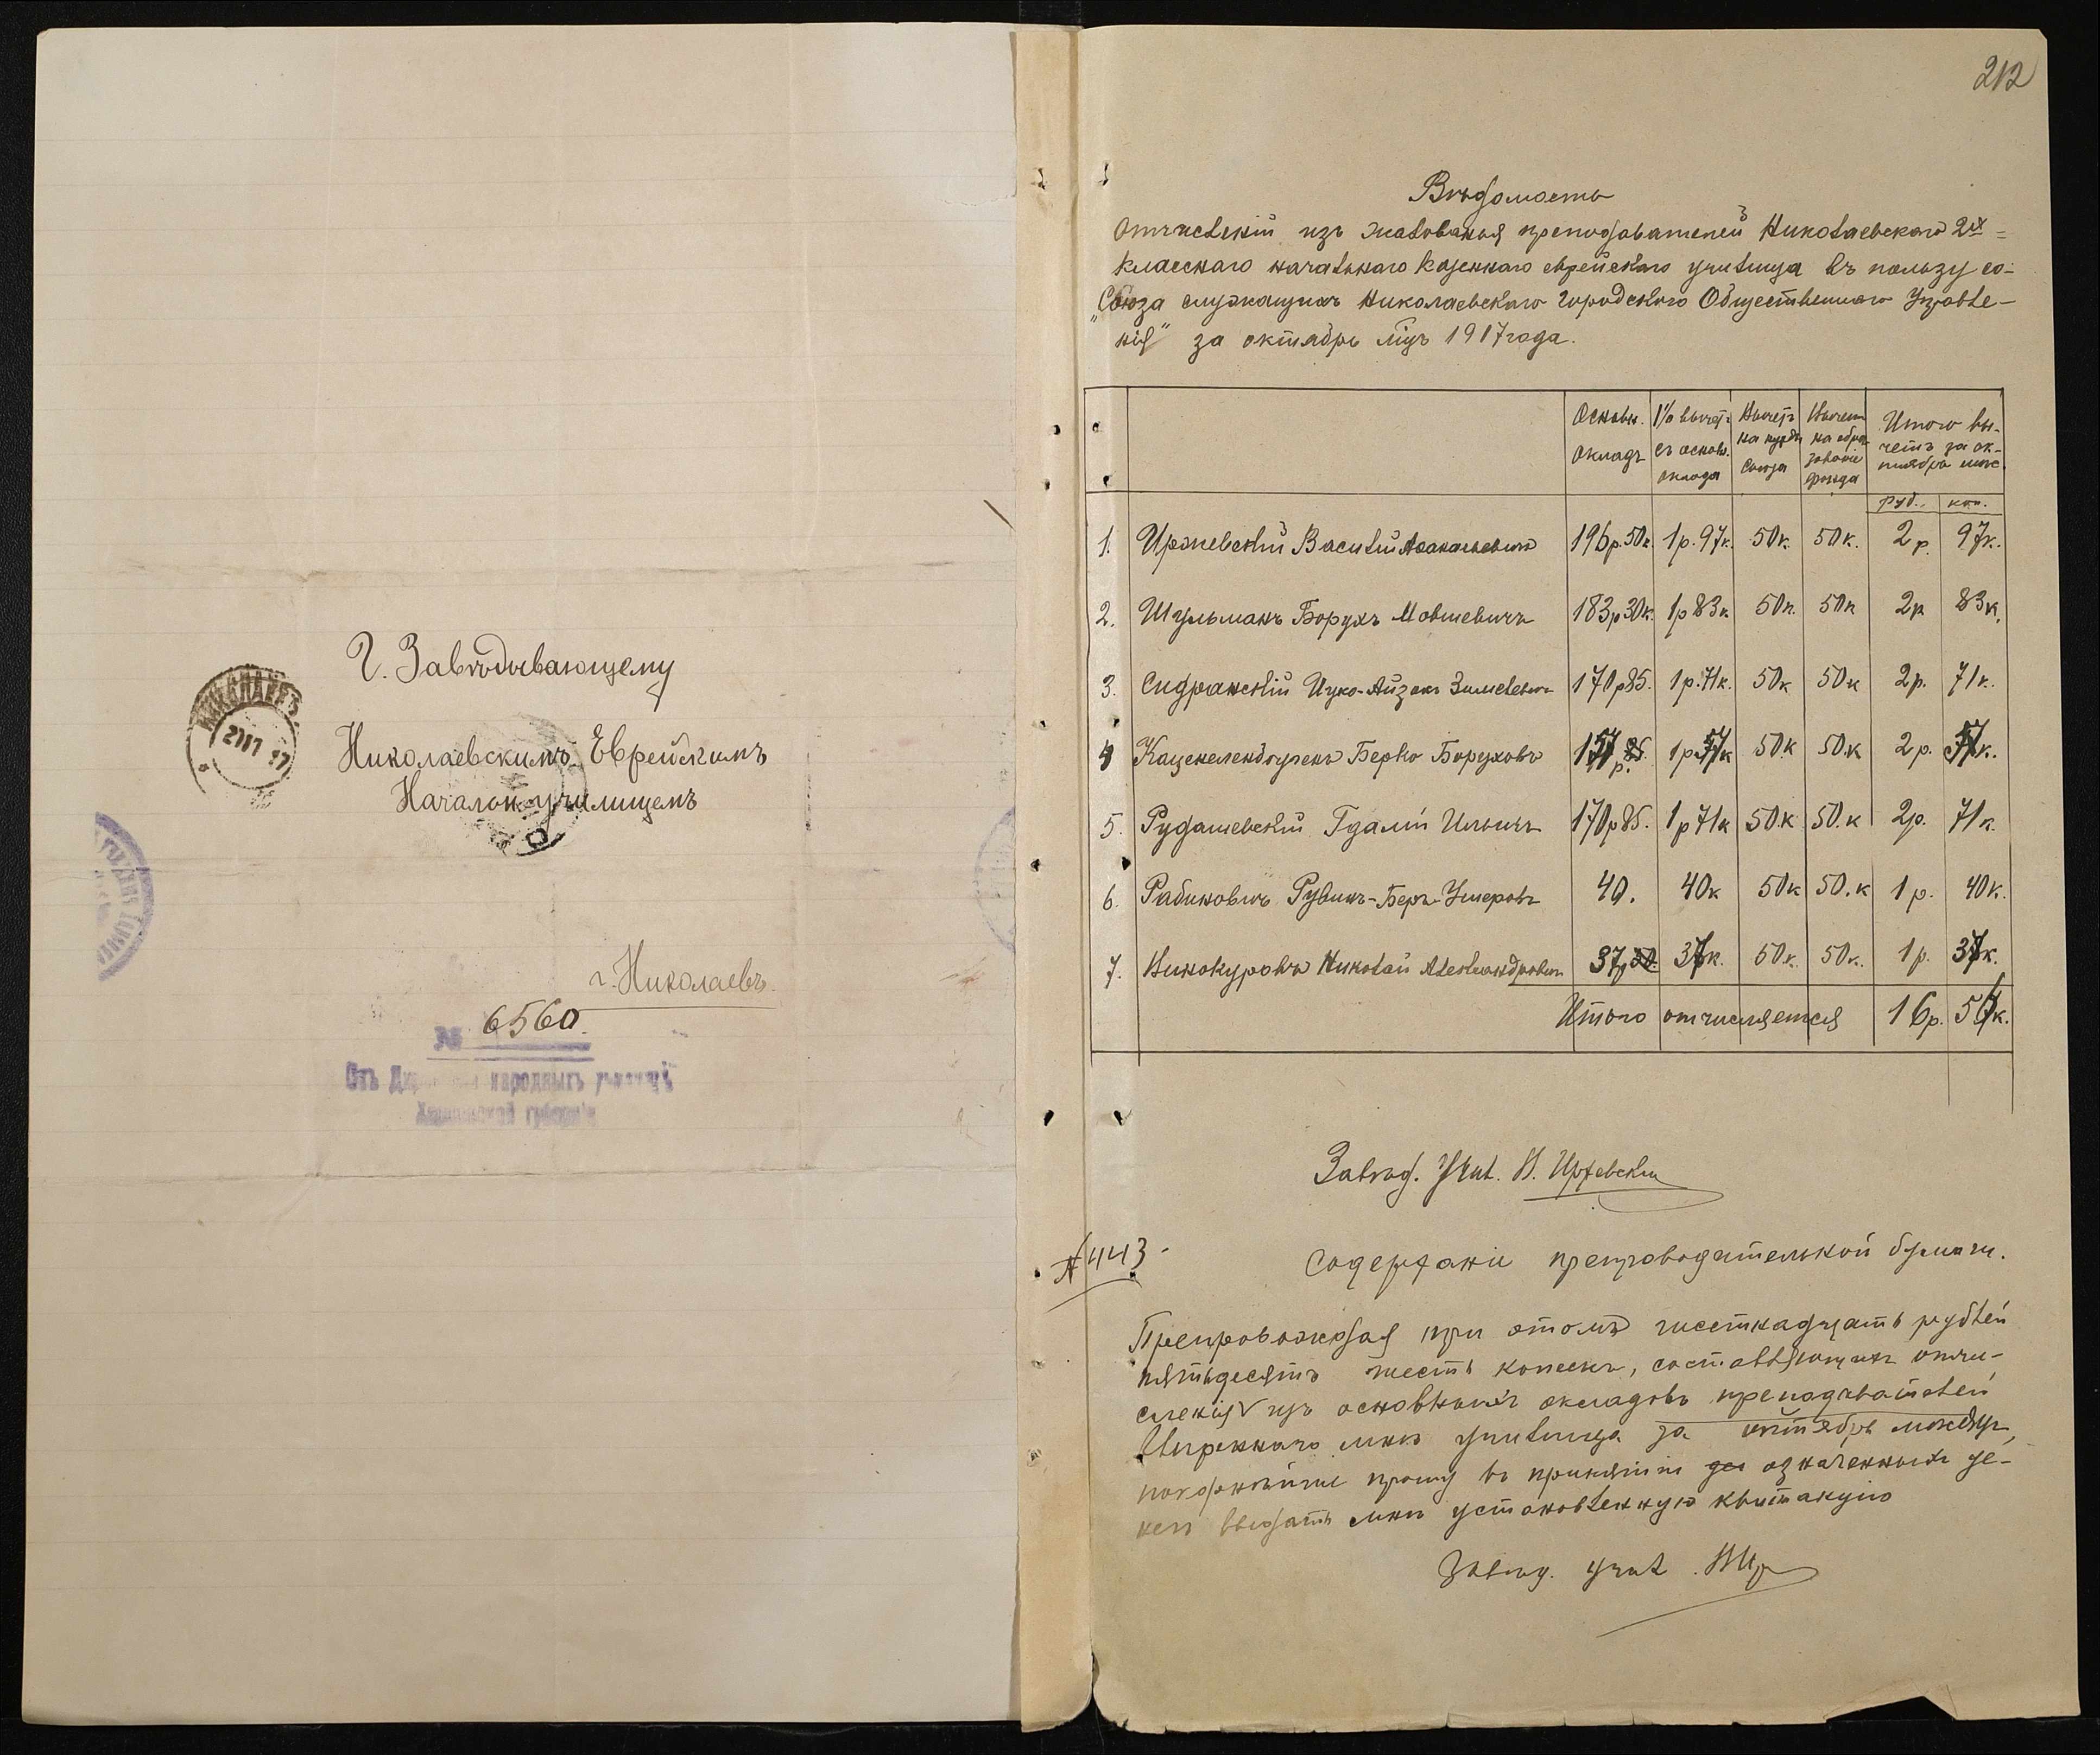 Г. Завѣдывающему
Николаевскимъ Еврейскимъ
Началон. училищемъ
НИКОЛАЕВЪ
г. Николаевъ.
№ 6560.
Отъ Ди народныхъ училищъ
Херсонской губерніи
212
Вѣдомость
отчисленій изъ жалованья преподавателей Николаевскаго 2ух=
класснаго начальнаго казеннаго еврейскаго училища въ пользу со-
„Союза служащихъ Николаевскаго Городского Общественнаго Управле-
нія" за октябрь мѣсяцъ 1917 года.
Основн. окладъ
1% вычетъ съ основн. оклада
Вычетъ на нужды союза
Вычетъ на образованіе фонда
Итого вычетъ за октябрь мѣс.
руб. коп.
1. Иржевскій Василій Аѳанасьевичъ 196р.50к. 1р.97к. 50к. 50к. 2р. 97к.
2. Шульманъ Борухъ Мовшевичъ 183р30к. 1р83к 50к. 50к 2р 83к.
3. Сидранскій Ицко-Айзекъ Зимелевичъ 170р85. 1р.71к. 50к 50к 2р. 71к.
4 Каценеленбогенъ Берко Боруховъ 157р. 1р57к 50к 50.к 2р. 57к.
5. Рудашевскій Гдалій Ильичъ 170р85. 1р71к 50к 50.к 2р. 71к.
6. Рабиновичъ Рувинъ-Беръ-Ушеровъ 40. 40к 50к 50.к 1р. 40к.
7. Винокуровъ Николай Александровичъ 37р50. 37к. 50к. 50к. 1р. 37к.
Итого отчисляется 16р. 56к.
Завѣд. Учил. В. Иржевскій
№443.
Содержаніе препроводательной бумаги.
Препровождая при этомъ шестнадцать рублей
пятьдесятъ шесть копеекъ, составляющихъ отчи-
сленія изъ основныхъ окладовъ преподавателей
ввѣреннаго мнѣ училища за октябрь мѣсяцъ,
покорнѣйше прошу въ принятіи означенныхъ де-
негъ выдать мнѣ установленную квитанцію
Завѣд. учил. В Ир